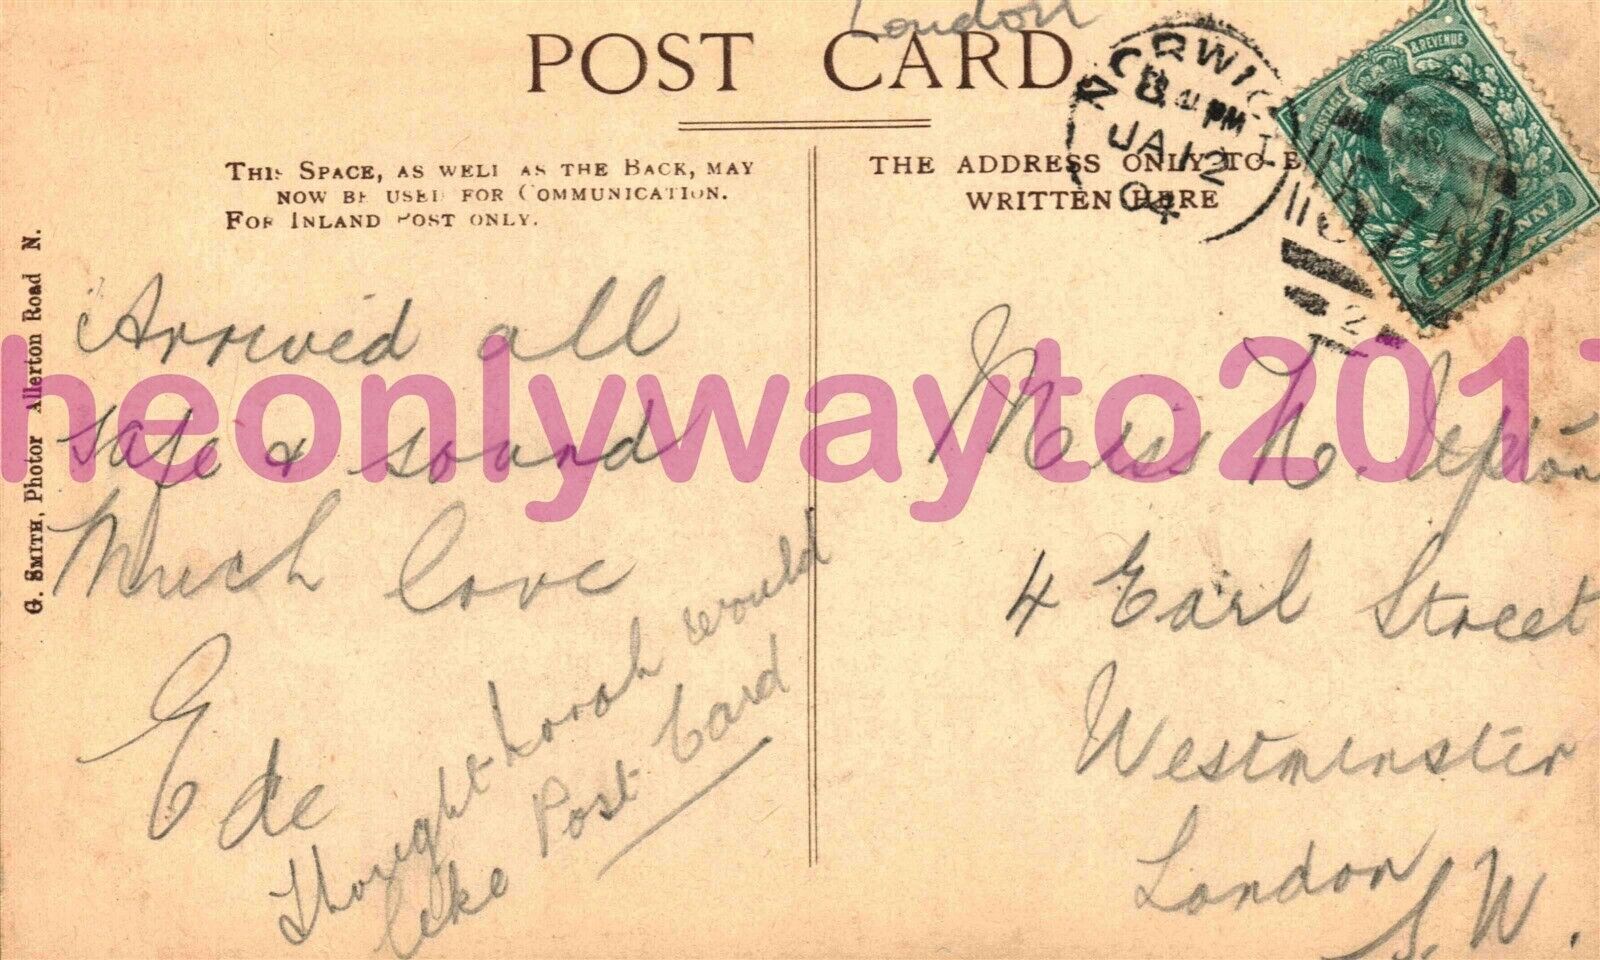 London
POST CARD
THIS SPACE, AS WELL AS THE BACK, MAY
NOW BE USED FOR COMMUNICATION.
FOR INLAND POST ONLY.
THE ADDRESS ONLY TO BE
WRITTEN HERE
NORWICH
PM
JA 12
04
POSTAGE & REVENUE
2
G. SMITH, Photor Allerton Road N.
Arrived all
safe & sound
Much love
Ede
Thought Lorah would
like Post Card
Miss N.
4 Earl Street
Westminster
London
S.W.
heonlywayto2017